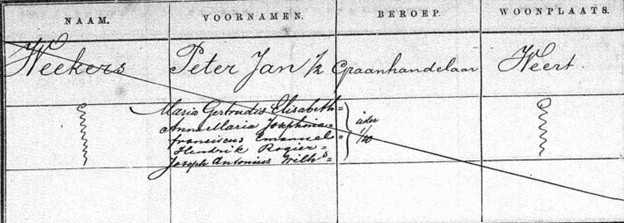 NAAM. VOORNAMEN. BEROEP. WOONPLAATS.
Weekers Peter Jan 1/2 Graanhandelaar Weert.
Maria Gertrudis Elisabeth =
Anna Maria Josephina =
Franciscus Emanuel = ieder
Hendrik Rogier = 1/10
Joseph Antonius Wilhs =